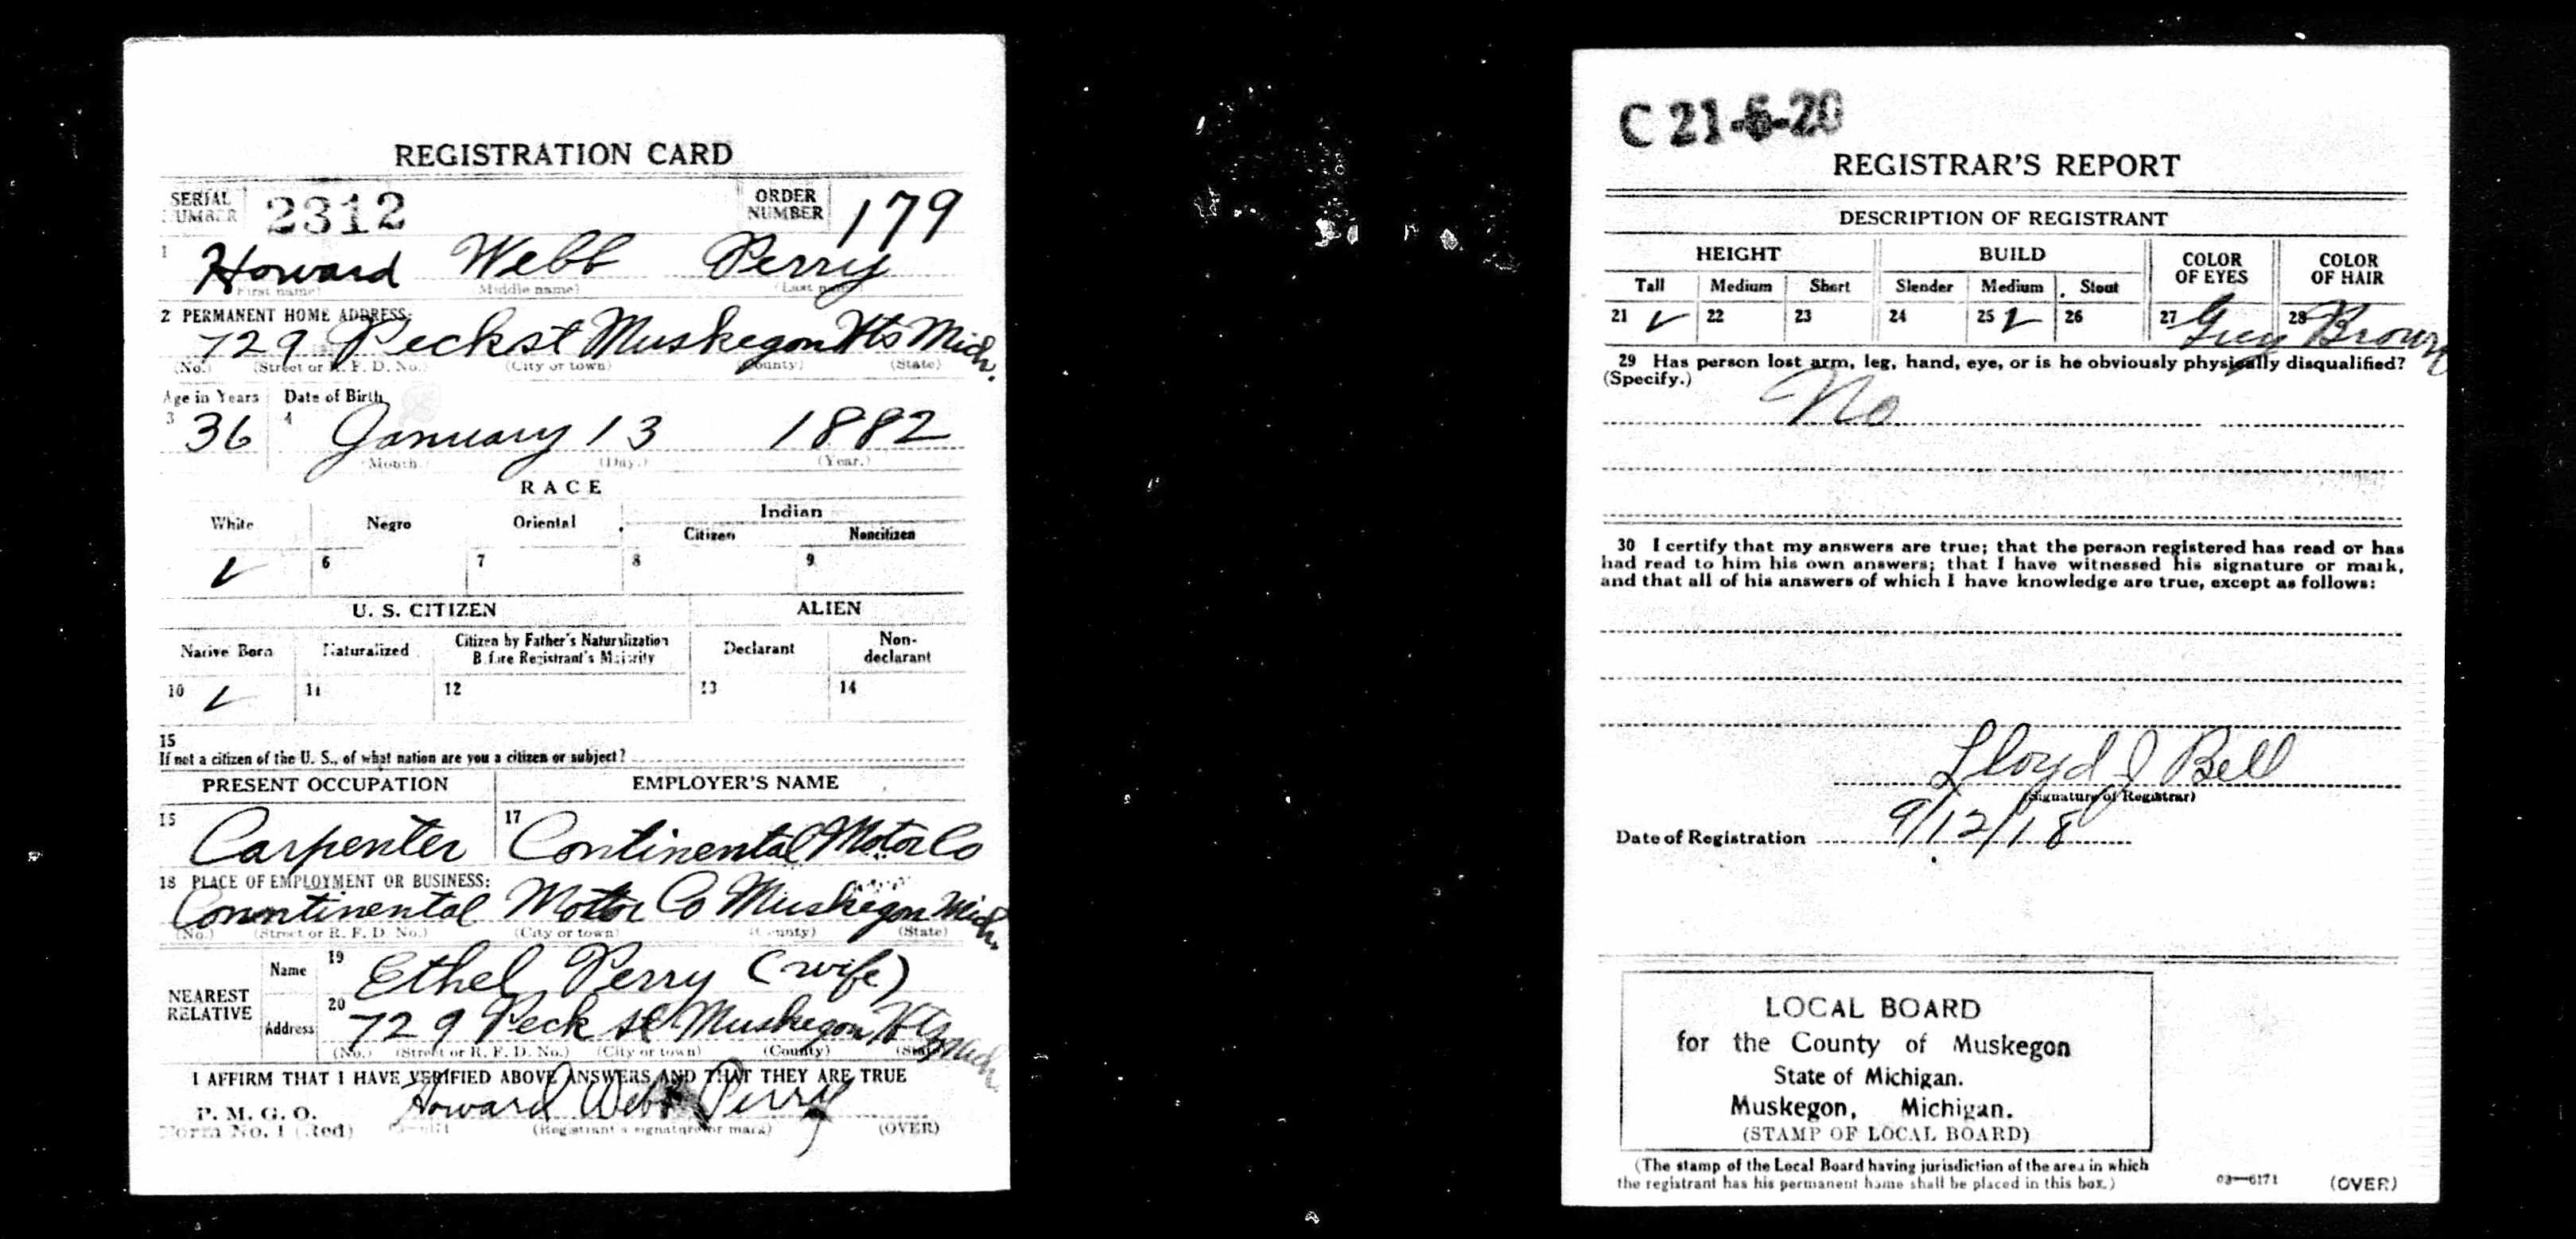 REGISTRATION CARD
SERIAL NUMBER 2312 ORDER NUMBER 179
1 Howard Webb Perry
(First name) (Middle name) (Last name)
2 PERMANENT HOME ADDRESS:
729 Peck st Muskegon Hts Mich.
(No.) (Street or R. F. D. No.) (City or town) (County) (State)
Age in Years Date of Birth
3 36 4 January 13 1882
(Month.) (Day.) (Year.)
RACE
White Negro Oriental Indian
Citizen Noncitizen
✓ 6 7 8 9
U. S. CITIZEN ALIEN
Native Born Naturalized Citizen by Father's Naturalization Before Registrant's Majority Declarant Non-declarant
10 ✓ 11 12 13 14
15
If not a citizen of the U. S., of what nation are you a citizen or subject?
PRESENT OCCUPATION EMPLOYER'S NAME
15 Carpenter 17 Continental Motor Co
18 PLACE OF EMPLOYMENT OR BUSINESS:
Conntinental Motor Co Muskegon Mich.
(No.) (Street or R. F. D. No.) (City or town) (County) (State)
NEAREST RELATIVE
Name 19 Ethel Perry (wife)
Address 20 729 Peck st Muskegon Hts Mich
(No.) (Street or R. F. D. No.) (City or town) (County) (State)
I AFFIRM THAT I HAVE VERIFIED ABOVE ANSWERS AND THAT THEY ARE TRUE
Howard Webb Perry
P. M. G. O.
Form No. 1 (Red) (Registrant's signature or mark) (OVER)
C 21-6-20
REGISTRAR'S REPORT
DESCRIPTION OF REGISTRANT
HEIGHT BUILD COLOR OF EYES COLOR OF HAIR
Tall Medium Short Slender Medium Stout
21 ✓ 22 23 24 25 ✓ 26 27 Grey 28 Brown
29 Has person lost arm, leg, hand, eye, or is he obviously physically disqualified?
(Specify.)
No
30 I certify that my answers are true; that the person registered has read or has
had read to him his own answers; that I have witnessed his signature or mark,
and that all of his answers of which I have knowledge are true, except as follows:
Lloyd J Bell
(Signature of Registrar)
Date of Registration 9/12/18
LOCAL BOARD
for the County of Muskegon
State of Michigan.
Muskegon, Michigan.
(STAMP OF LOCAL BOARD)
(The stamp of the Local Board having jurisdiction of the area in which
the registrant has his permanent home shall be placed in this box.)
03—6171 (OVER)